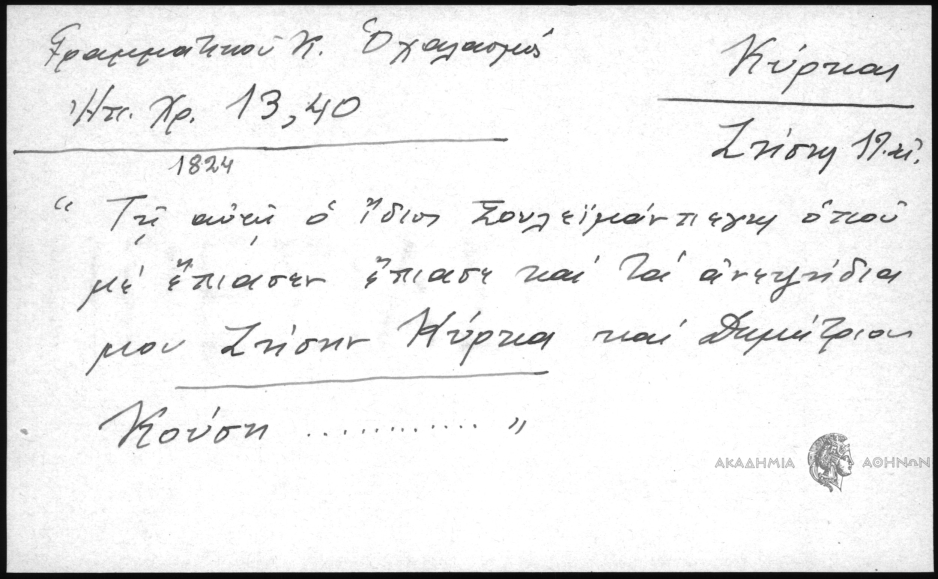 Γραμματικού Κ. Ὁ χαλασμός
Ἠπ. Χρ. 13,40
Κύρκας
Στίσης 19. αἰ.
1824
“ Τῇ αὐτῇ ὁ ἴδιος Σουλεϊμάνπεγης ὁποῦ
μέ ἔπιασεν ἔπιασε καί τά ἀνεψίδια
μου Στίσην Κύρκα καί Δημήτριον
Κούση ............ „
ΑΚΑΔΗΜΙΑ ΑΘΗΝΩΝ